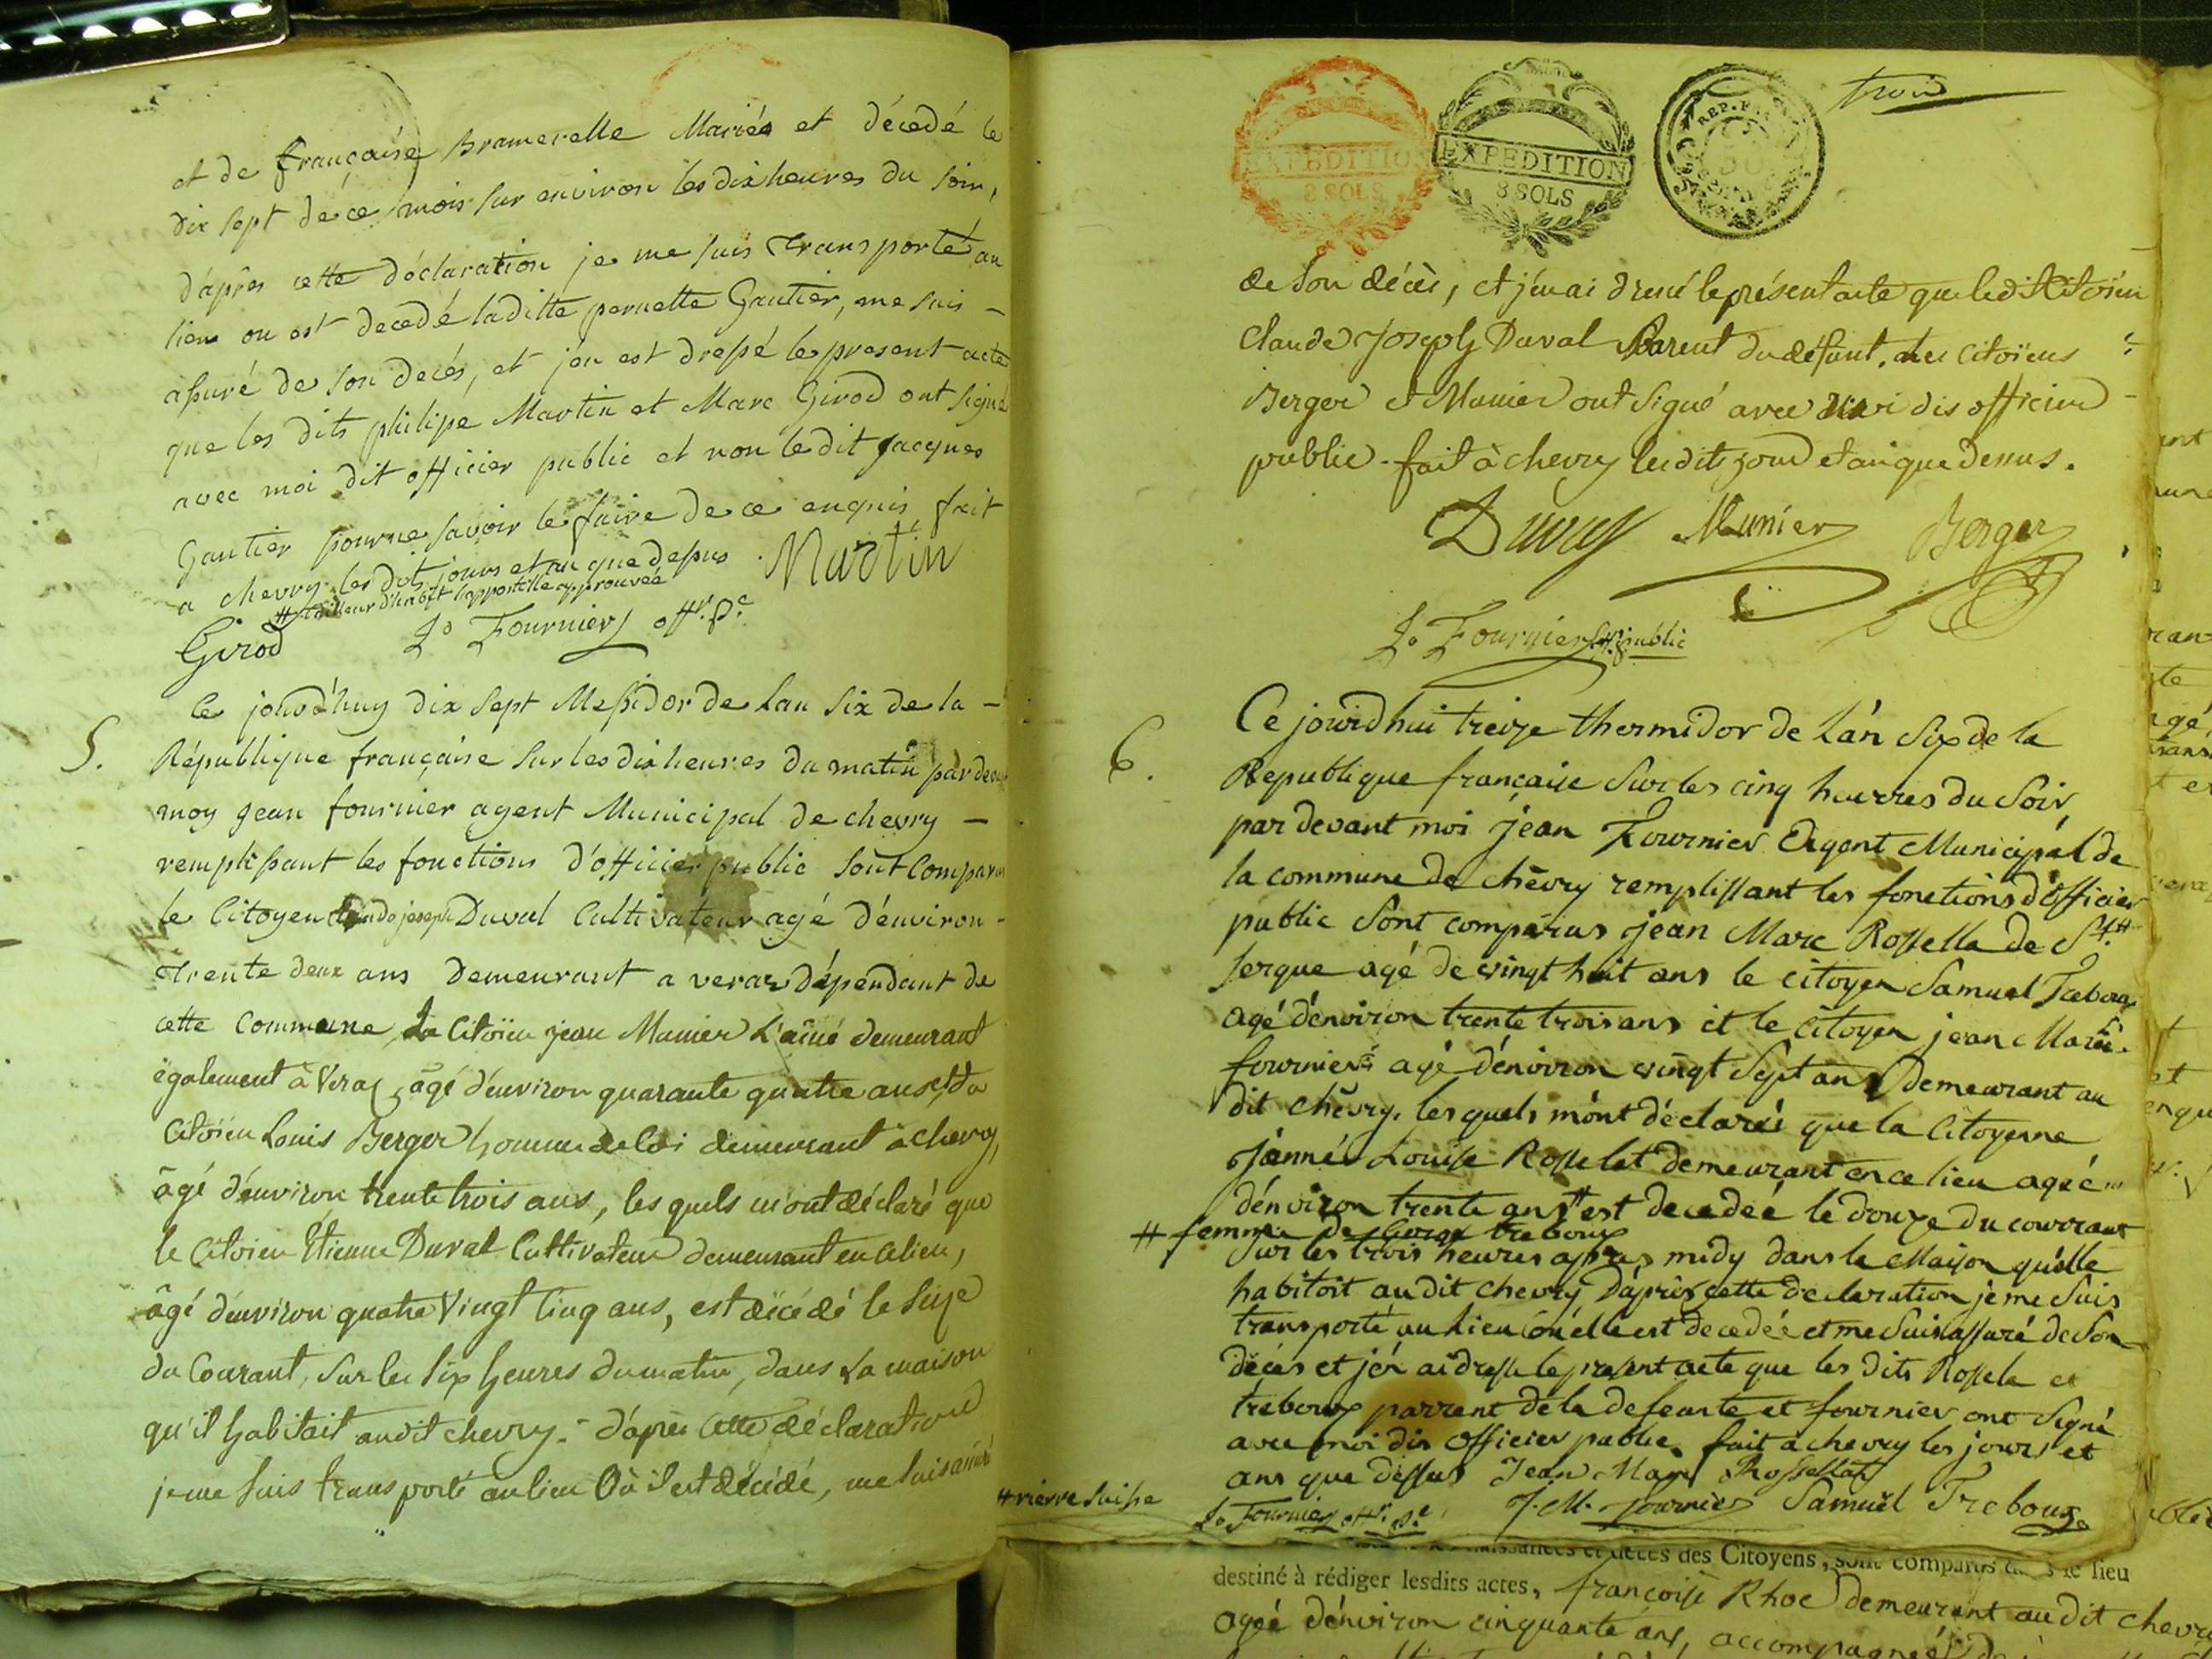 et de françoise Bramerelle Mariés et décedé le
dix sept de ce mois sur environ les dix heures du soir,
d'après cette déclaration je me suis transporté au
lieu ou est decedé laditte pernette Gautier, me suis -
assuré de son decés, et jen est dressé le present acte
que les dits philipe Martin et Marc Girod ont signé
avec moi dit officier public et non le dit Jacques
Gautier pour ne savoir le faire de ce enquis fait
a chevry les dits jours et an que dessus . Martin
# tailleur d'habit l'appostille approuvée
Girod Jn Fournier offr. pc.
5.
Ce jourd'huy dix sept Messidor de Lan Six de la -
République française sur les dix heures du matin par devant
moy jean fournier agent Municipal de chevry -
remplissant les fonctions d'officier public sont Comparu
le Citoyen Claude joseph Duval Cultivateur agé d'environ -
trente deux ans demeurant a veraz dépendant de
cette Commune, Le Citoïen jean Munier L'aîné demeurant
également à Veraz, âgé d'environ quarante quatre ans, et du
Citoïen Louis Berger homme de loi demeurant à chevry,
âgé d'environ trente trois ans, les quels m'ont déclaré que
le Citoïen Etienne Duval Cultivateur demeurant en ce lieu,
âgé d'environ quatre Vingt Cinq ans, est décédé le Seize
du Courant, sur les six heures du matin, dans La maison
qu'il habitait audit chevry. - d'après cette déclaration
je me suis transporté au lieu Où il est décédé, me suis assuré
trois
EXPEDITION
8 SOLS
EXPEDITION
8 SOLS
REP. FRA
de son décès, et j'en ai dressé le présent acte que ledit Citoïen
Claude Joseph Duval Parent du défunt, et les Citoïens
Berger et Munier ont signé avec moi dis officier
public - fait à chevry les dits jour et an que dessus.
Duval Munier Berger
Jn Fournier off. public
6.
Ce jourd'hui treize thermidor de L'an Six de la
Republique française Sur les cinq heurres du Soir
par devant moi jean Fournier Agent Municipal de
la commune de chevry remplissant les fonctions d'officier
public Sont comparus jean Marc Rosselle de St. #
Sergue agé de vingt huit ans le citoyen Samuel Treboux
agé d'environ trente trois ans et le citoyen jean Marie
fournier agé d'environ vingt Sept ans demeurant au
dit chevry. les quels m'ont déclarés que la Citoyenne
Jannés Louise Rosselet demeurant en ce lieu agéé
d'environ trente ans # est decedée le douze du courrant
# femme de Gorge treboux
Sur les trois heures apres midy dans la Maison qu'elle
habitoit au dit chevry D'après cette declaration je me Suis
transporté au Lieu ou elle est decedée et me Suis assuré de Son
décès et j'en ai dressé le present acte que les dits Rossele et
treboux parrent de la defeunte et fournier ont Signé
avec moi dis officier public, fait a chevry les jours et
ans que dessus Jean Marc Rossellat
# rierre Suisse
Jn Fournier offr. pc. J. M. fournier Samuël Treboux
naissances et décès des Citoyens, sont comparus dans le lieu
destiné à rédiger lesdits actes, françoise Rhoe demeurant au dit chevry
agéé d'environ cinquante ans, accompagnéé